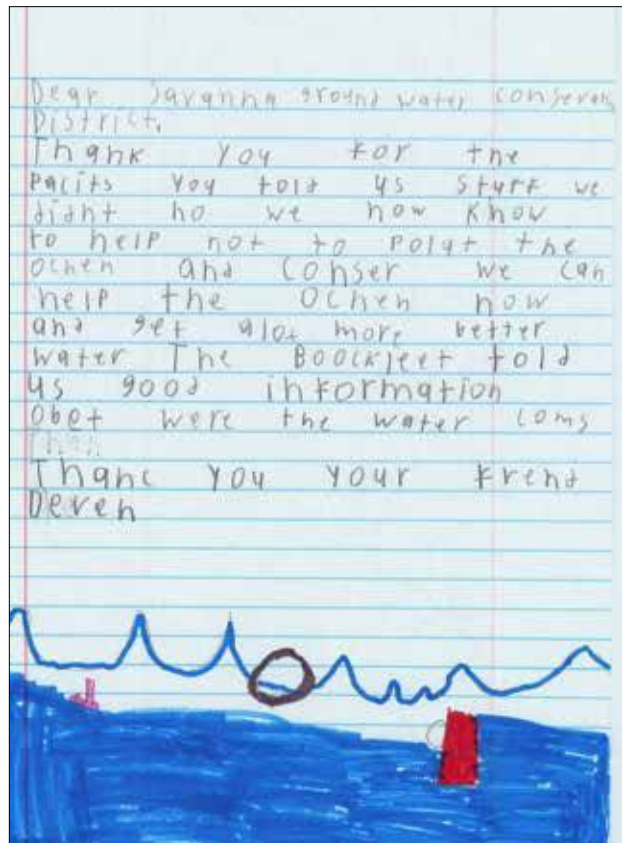 Dear Savanna ground water conservan
District.
Thank you for the
Pacits you told us stuff we
didnt no we now know
to help not to polut the
ochen and conser we can
help the ochen now
and get alot more better
water The Boockleet told
us good information
obet were the water coms
Than
Thanc you your frend
Deven